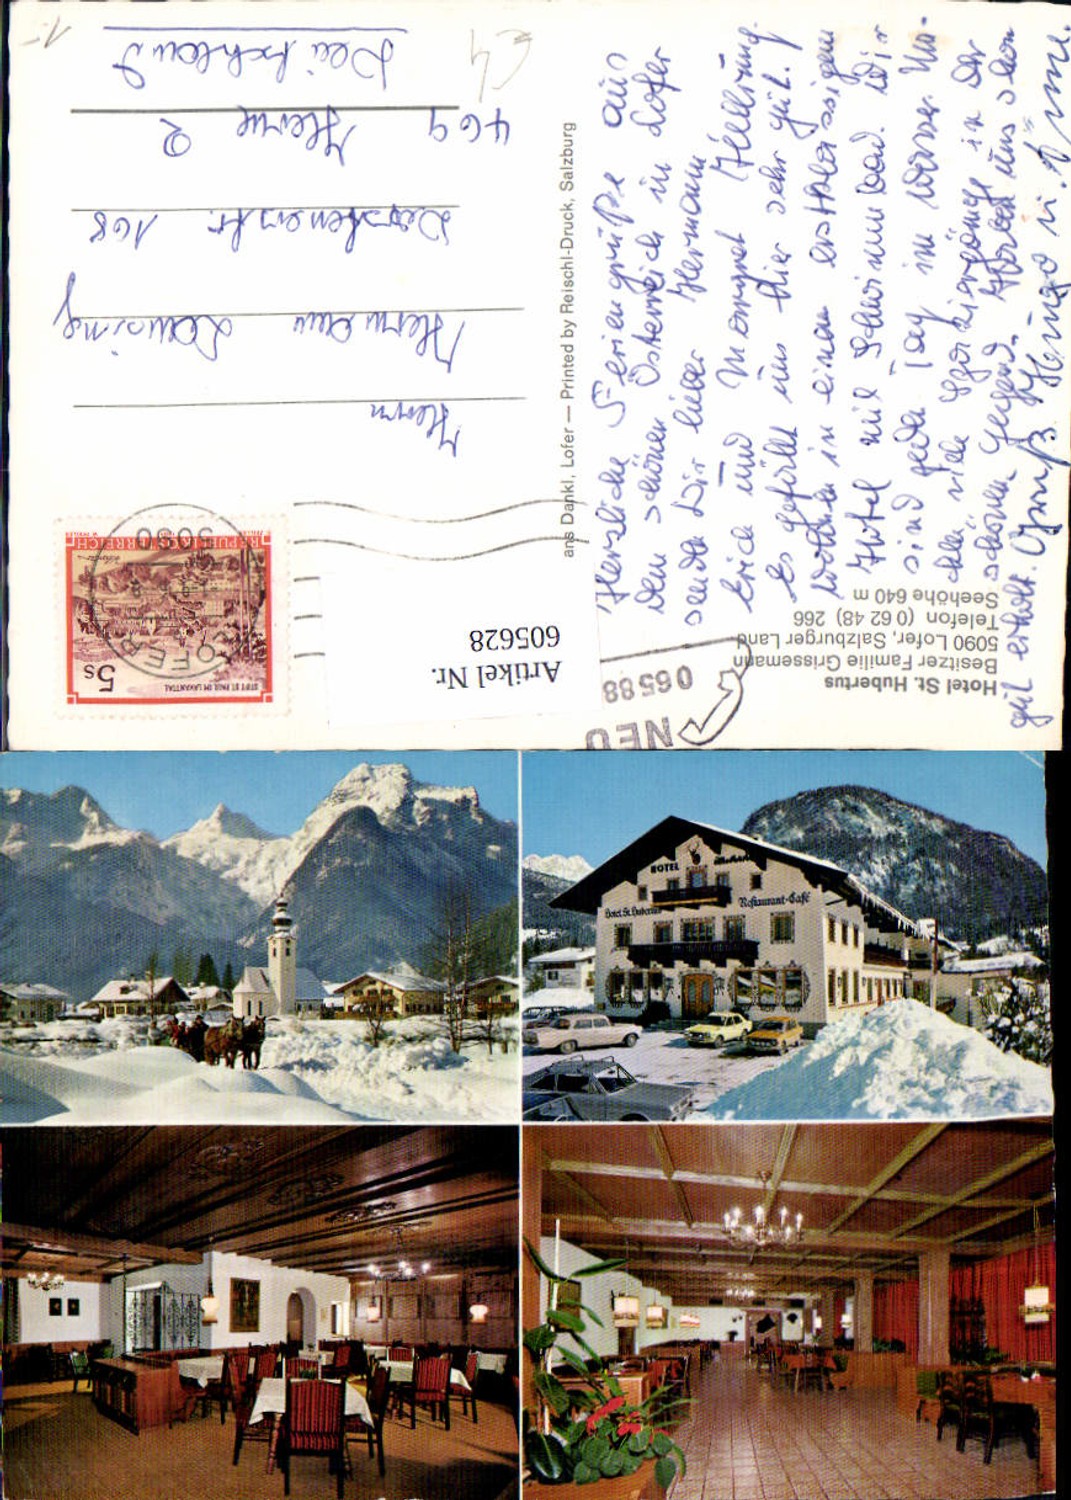 Hotel St. Hubertus
Besitzer Familie Grissemann
5090 Lofer, Salzburger Land
Telefon (0 62 48) 266
Seehöhe 640 m
NEU
06588
Herzliche Feriengrüße aus
dem schönen Österreich in Lofer
sendet Dir lieber Hermann
Erich und Margret
Es gefällt uns hier sehr gut.
Wohnen in einem erstklassigen
Hotel mit Schwimmbad. Wir
sind jeden Tag im Wasser. Ma-
chen viele Spaziergänge in der
schönen Gegend. Haben uns schon
gut erholt. Gruß
ans Dankl, Lofer — Printed by Reischl-Druck, Salzburg
REPUBLIK ÖSTERREICH
STIFT ST. PAUL IM LAVANTTAL
5s
5090
LOFER
Artikel Nr.
605628
Herrn
Hermann Lensing
168
469 Herne 2
Deutschland
1.-
HOTEL
Hotel St. Hubertus
Restaurant-Café